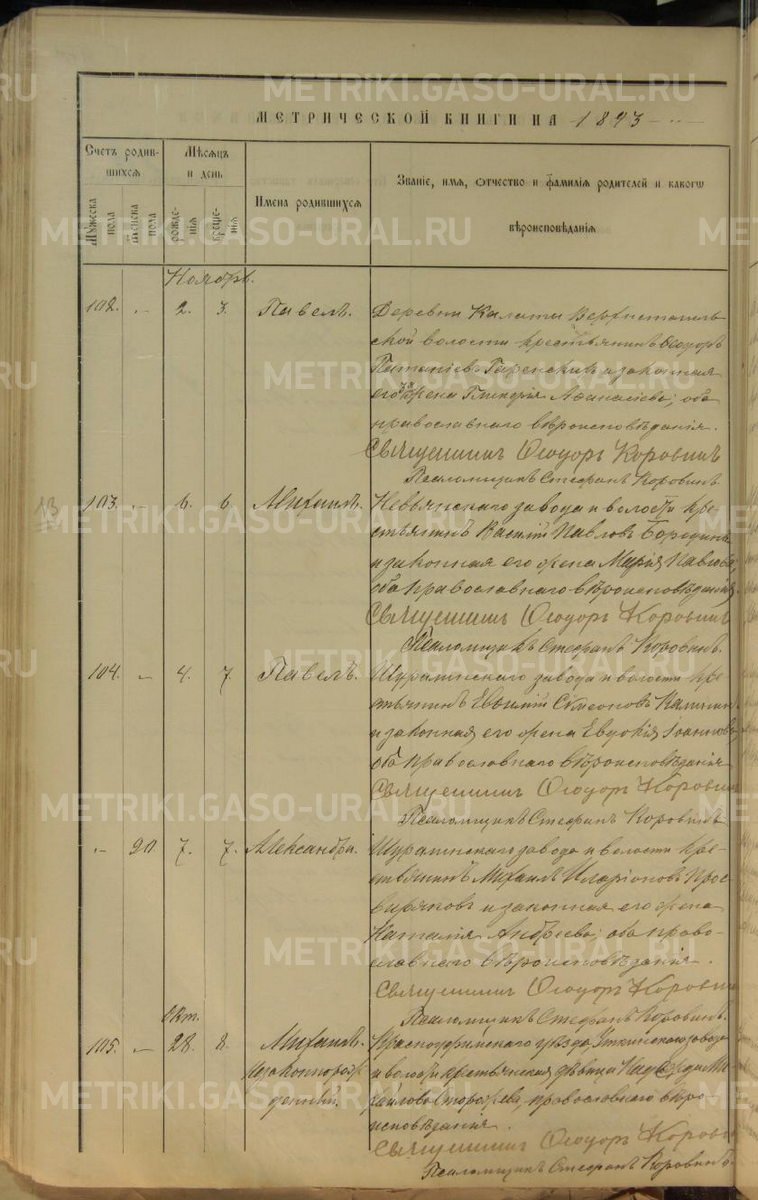 METRIKI.GASO-URAL.RU
МЕТРИЧЕСКОЙ КНИГИ НА 1893
Счетъ родив-
шихся
Мѣсяцъ
и день
Имена родившихся
Званіе, имя, отчество и фамилія родителей и какогѡ
вѣроисповѣданія
Мужеска пола
Женска пола
рожде-
нія
креще-
нія
Ноябрь.
102. 2. 3. Павелъ.
Деревни Калаты Верхнетагиль-
ской волости крестьянинъ Ѳеодоръ
законная
его жена Гликерія Аѳанасіева, оба
православнаго вѣроисповѣданія.
Священникъ Ѳеодоръ Коровинъ
Псаломщикъ Стефанъ Коровинъ.
13
103. 6. 6. Михаилъ.
Невьянскаго завода и волости кре-
стьянинъ Василій Павловъ Бородинъ
и законная его жена Марія Павлова,
оба православнаго вѣроисповѣданія.
Священникъ Ѳеодоръ Коровинъ
Псаломщикъ Стефанъ Коровинъ.
104. 4. 7. Павелъ.
Шуралинскаго завода и волости кре-
стьянинъ Евѳимій Симеоновъ
и законная его жена Евдокія Іоаннова,
оба православнаго вѣроисповѣданія
Священникъ Ѳеодоръ Коровинъ
Псаломщикъ Стефанъ Коровинъ
7. 7. Александра.
Шуралинскаго завода и волости кре-
стьянинъ Михаилъ Иларіоновъ Прос-
виряковъ и законная его жена
Наталія Андреева, оба право-
славнаго вѣроисповѣданія.
Священникъ Ѳеодоръ Коровинъ
Псаломщикъ Стефанъ Коровинъ.
Окт.
105. 28. 8. Михаилъ
незаконнорож-
денный.
Красноуфимскаго уѣзда, Уткинскаго завода
и волости крестьянская дѣвица Надежда Ми-
хайлова православнаго вѣро-
исповѣданія.
Священникъ Ѳеодоръ Коровинъ
Псаломщикъ Стефанъ Коровинъ.